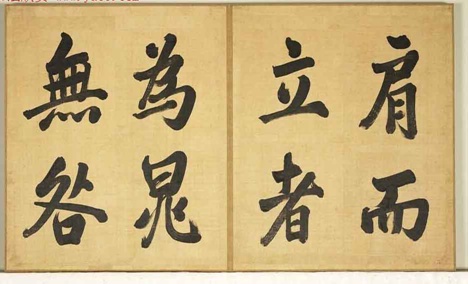 肩而
立者
為晁
無咎